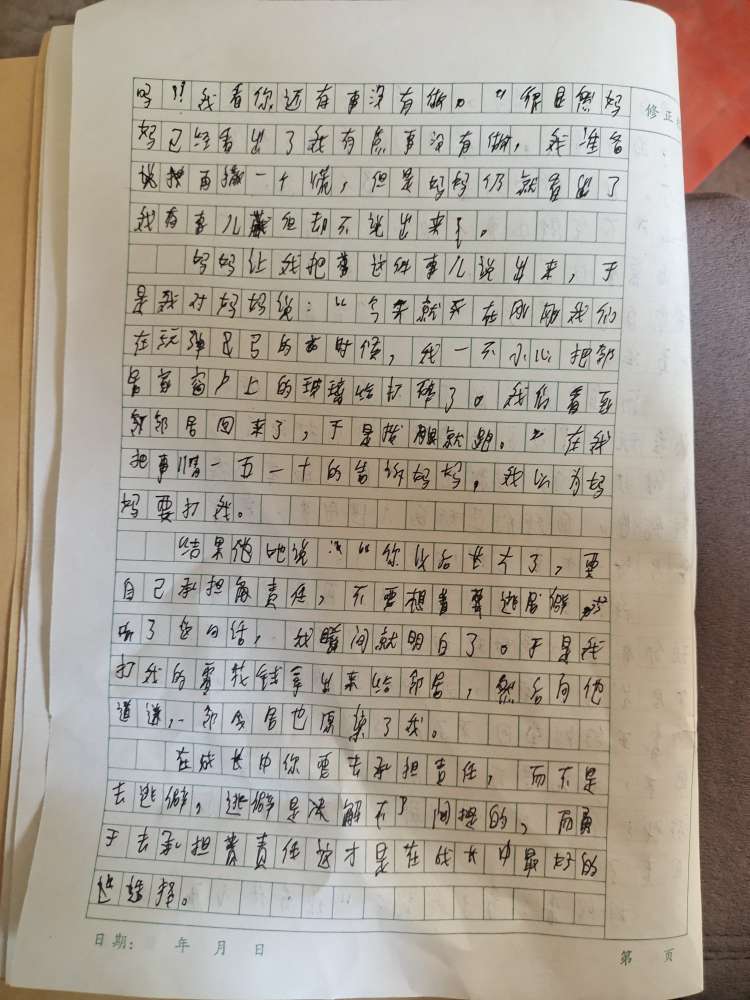 吗？"我看你还有事没有做。"很显然妈
修正
妈已经看出了我有点事没有做，我准备
再撒一个慌，但是妈妈仍就看出了
我有事儿藏但却不说出来。
妈妈让我把事这件事儿说出来，于
是我对妈妈说："今天就我在刚刚我们
在玩弹弓的时候，我一不小心把邻
居家窗户上的玻璃给打碎了。我们看到
邻居回来了，于是拔腿就跑。"在我
把事情一五一十的告诉妈妈，我以为妈
妈要打我。
结果他她说："你以后长大了，要
自己承担责任，不要想着要逃避
听了这句话，我瞬间就明白了。于是我
打我的零花钱拿出来给邻居，然后向他
道迷，邻居也原集了我。
在成长中你要去承担责任，而不是
去逃避，逃避是决解不了问提的，而勇
于去承担责任这才是在成长中最好的
选择。
日期： 年 月 日
第 页